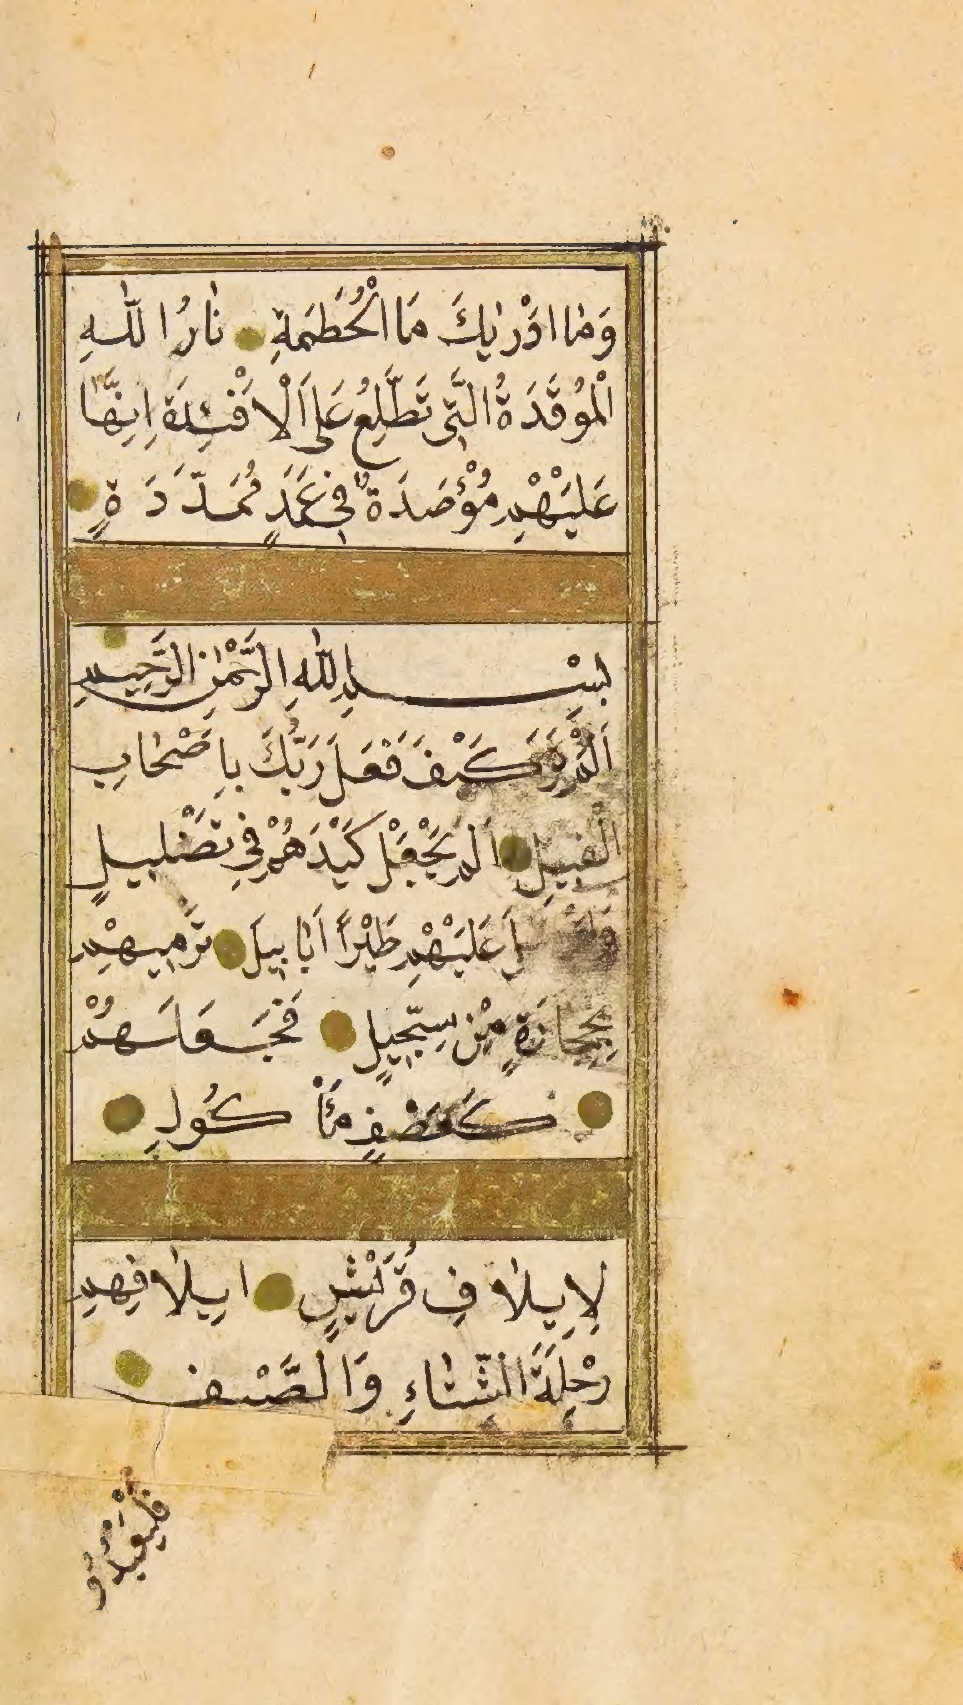 وَمَا ادْرٰيكَ مَا الْحُطَمَةِ نَارُ اللّٰهِ
الْمُوقَدَةُ الَّتِى تَطَّلِعُ عَلَى الْافْئِدَةِ اِنَّهَا
عَلَيْهْمِ مُؤْصَدَةٌ فِى عَمَدٍ مُمَدَّدَةٍ
بِسْمِ اللّٰهِ الرَّحْمٰنِ الرَّحِيمِ
اَلَمْ تَرَ كَيْفَ فَعَلَ رَبُّكَ بِاَصْحَابِ
الْفِيلِ اَلَمْ يَجْعَلْ كَيْدَهُمْ فِى تَضْلِيلٍ
عَلَيْهْمِ طَيْرًا اَبَابِيلَ تَرْمِيهِمْ
بِحِجَارَةٍ مِنْ سِجِّيلٍ فَجَعَلَهُمْ
كَعَصْفٍ مَأْكُولٍ
لِاِيلَافِ قُرَيْشٍ اِيلَافِهِمْ
رِحْلَةَ الشِّتَاءِ وَالصَّيْفِ
فَلْيَعْبُدُوا